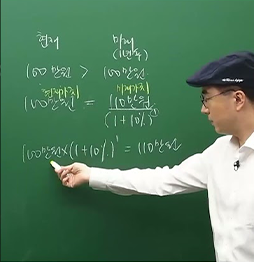 현재 미래
(1년 후)
100만원 > 100만원
현재가치 미래가치
100만원 = 110만원
(1+10%)¹
100만원×(1+10%)¹ = 110만원